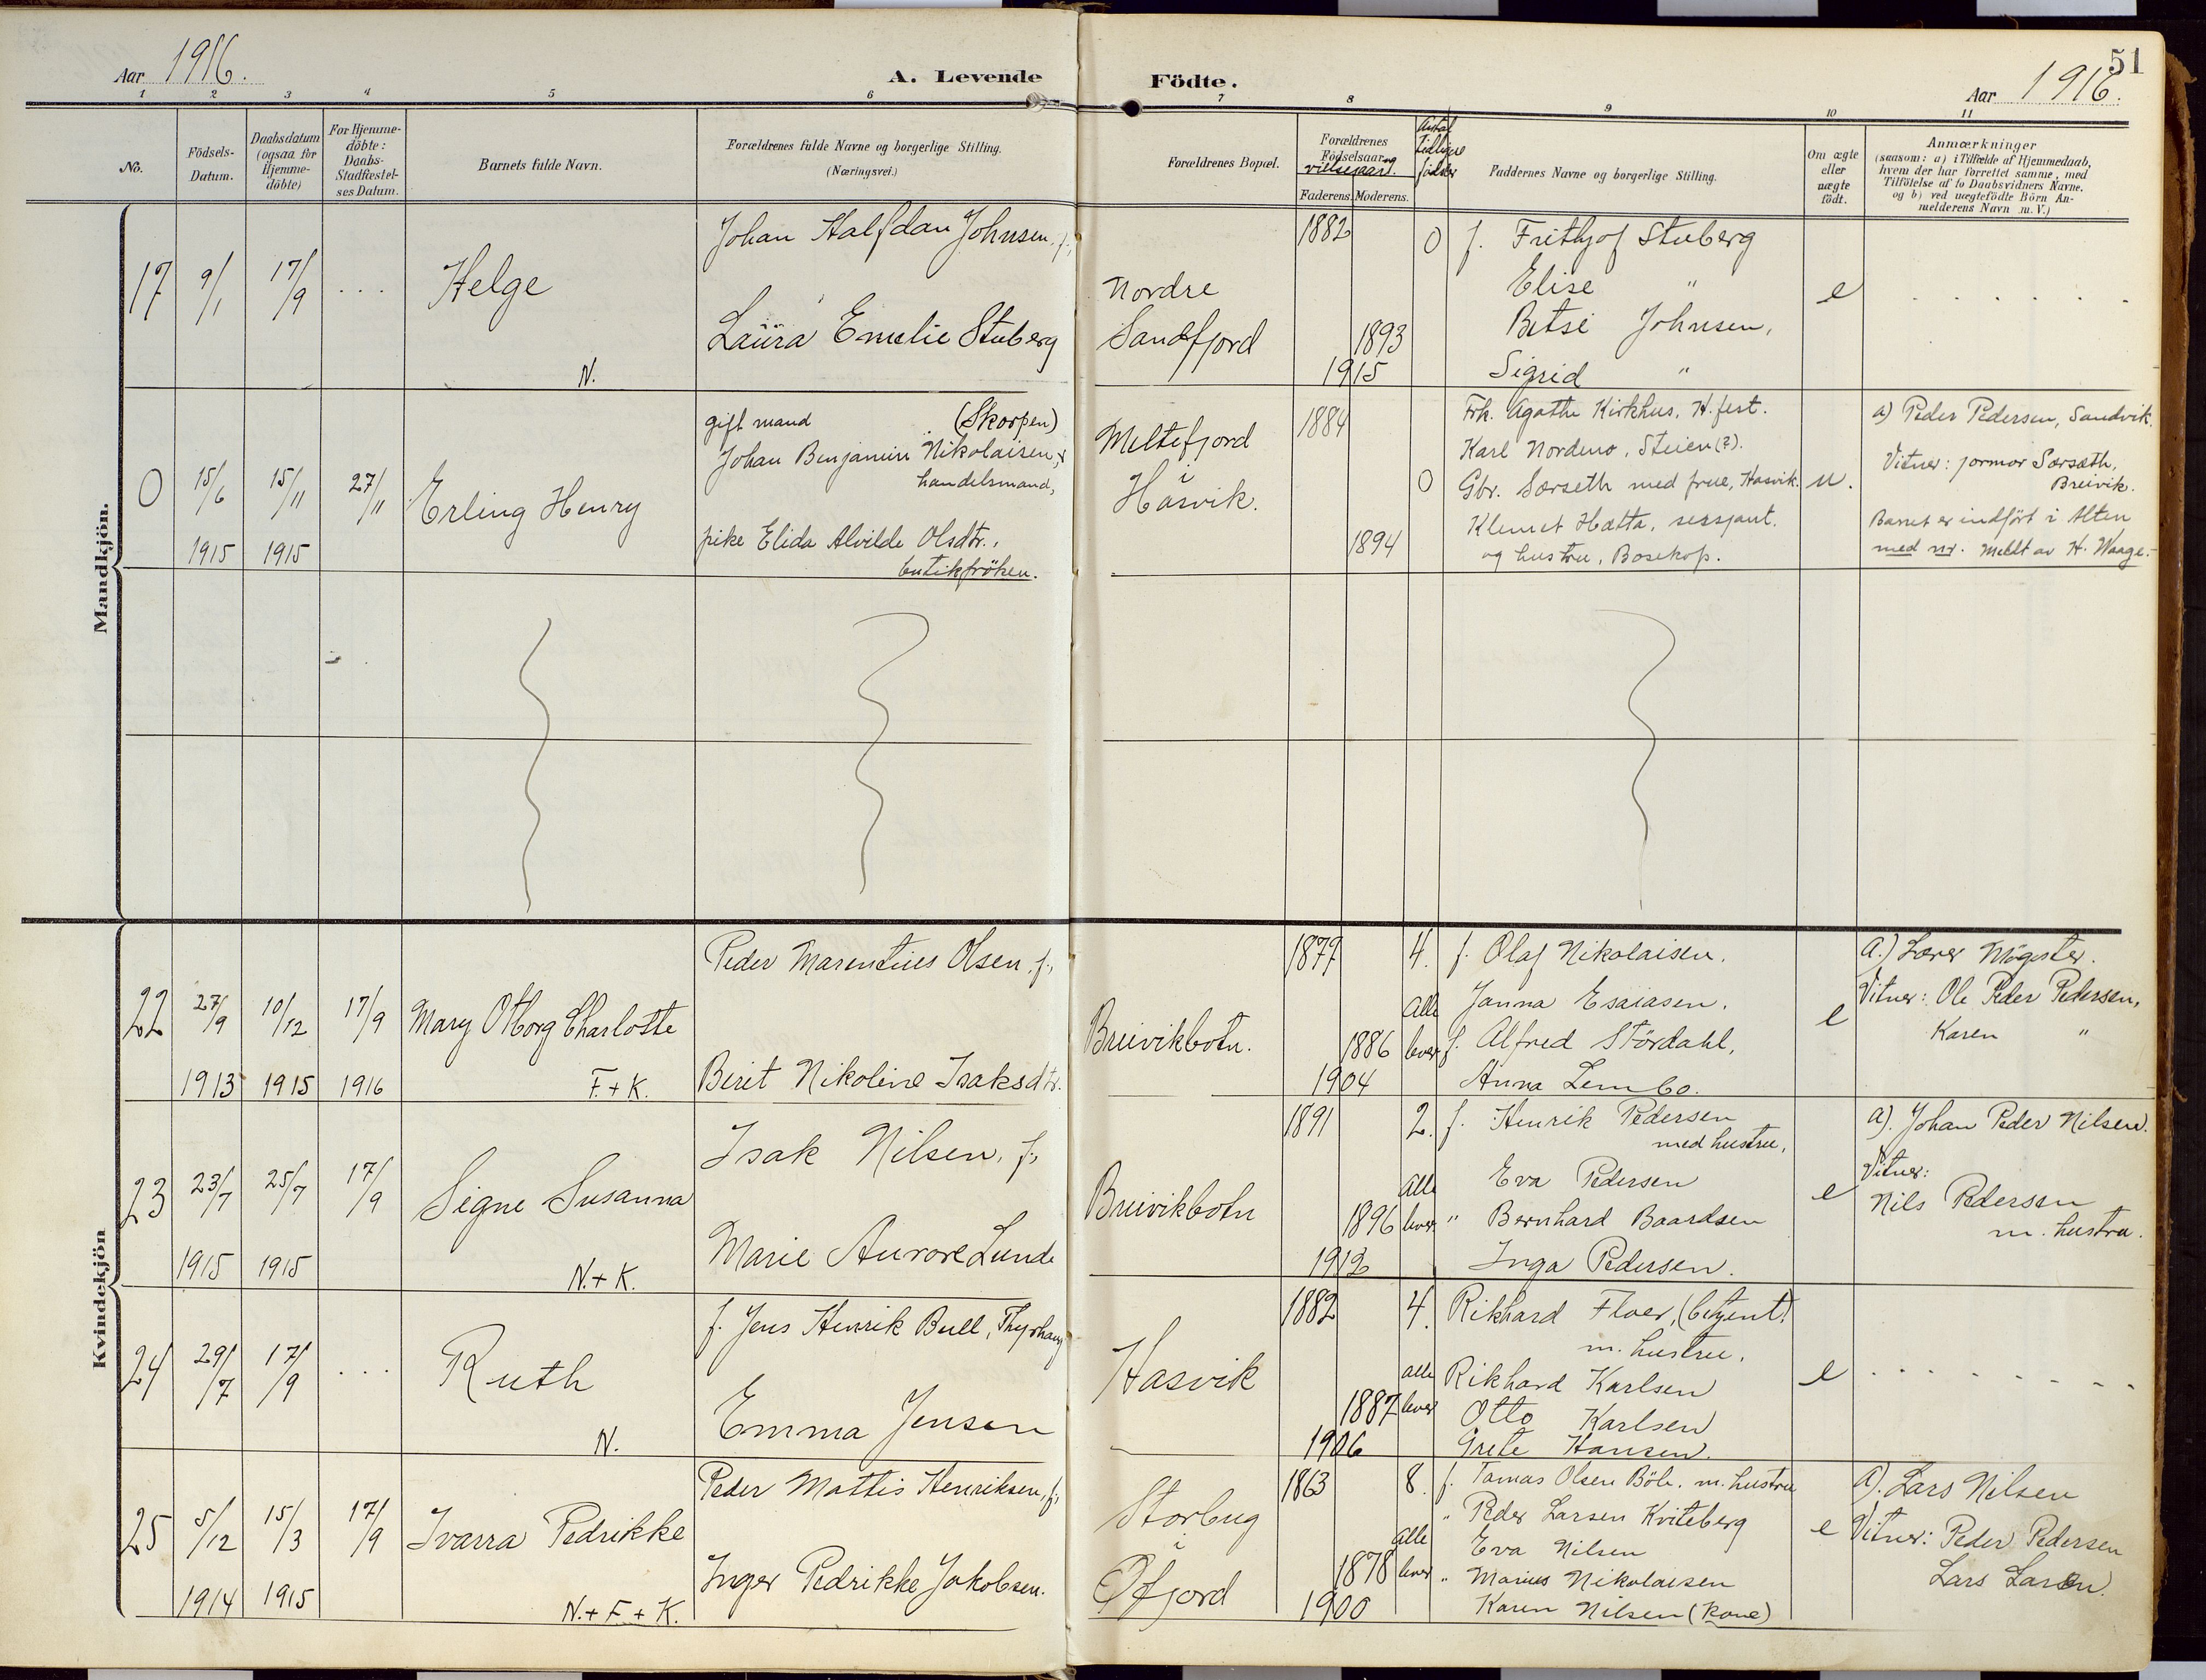 Aar 1916.
A. Levende
Födte.
Aar 1916.
51
1 2 3 4 5 6 7 8 9 10 11
No.
Födsels-
Datum.
Daabsdatum
(ogsaa for
Hjemme-
döbte)
For Hjemme-
döbte:
Daabs-
Stadfæstel-
ses Datum.
Barnets fulde Navn.
Forældrenes fulde Navne og borgerlige Stilling.
(Næringsvei.)
Forældrenes Bopæl.
Forældrenes
Födselsaar og
vielsesaar.
Faderens. Moderens.
Antal
tidligere
födsler
Faddernes Navne og borgerlige Stilling.
Om ægte
eller
uægte
födt.
Anmærkninger
(saasom: a) i Tilfælde af Hjemmedaab,
hvem der har forrettet samme, med
Tilföielse af to Daabsvidners Navne,
og b) ved uægtefödte Börn An-
melderens Navn m. V.)
Mandkjön.
17 9/1 17/9 ... Helge
N.
Johan Halfdan Johnsen, f.,
Laura Emelie Stuberg
Nordre
Sandfjord
1882
1893
1915
0
f. Frithjof Stuberg
Elise "
Betsi Johnsen,
Sigrid "
e
0 15/6 15/11 27/11 Erling Henry
1915 1915
gift mand (Skorpen)
Johan Benjamin Nikolaisen,
handelsmand,
pike Elida Alvilde Olsdtr.,
butikfröken.
Meltefjord
i
Hasvik.
1884
1894
0
Frk. Agathe Kirkhus, H.fest.
Karl Nordmo, Steien (?).
Gbr. Sørseth med frue, Hasvik.
Klemet Hætta, sersjant.
og hustru, Bosekop.
u.
a) Peder Pedersen, Sandvik.
Vitner: jormor Sørsæth,
Breivik.
Barnet er indfört i Alten
med nr. Meldt av H. Waage.
Kvindekjön
22 27/9 10/12 17/9 Mary Otborg Charlotte
1913 1915 1916 F. + K.
Peder Marentius Olsen, f.,
Berit Nikoline Isaksdtr.
Breivikbotn.
1877
1886
1904
4.
alle
lever
f. Olaf Nikolaisen.
Janna Esaiasen.
f. Alfred Stördahl,
Anna Lembo.
e
a.) Lærer Mögster.
Vitner: Ole Peder Pedersen,
Karen "
23 23/7 25/7 17/9 Signe Susanna
1915 1915 N. + K.
Isak Nilsen, f.,
Marie Aurore Lunde
Breivikbotn
1891
1896
1912
2.
alle
lever
f. Henrik Pedersen
med hustru,
Eva Pedersen
" Bernhard Baardsen
Inga Pedersen.
e
a). Johan Peder Nilsen.
Vitner:
Nils Pedersen
m. hustru.
24 29/7 17/9 ... Ruth
N.
f. Jens Henrik Bull, Thyrhaug
Emma Jensen
Hasvik
1882
1887
1906
4.
alle
lever
Rikhard Floer, (betjent)
m. hustru,
Rikhard Karlsen
Otto Karlsen
Grete Hansen.
e
25 5/12 15/3 17/9 Ivarra Pedrikke
1914 1915 N. + F. + K.
Peder Mattis Henriksen, f.,
Inger Pedrikke Jakobsen.
Storbug
i
Öfjord
1863
1878
1900
8.
alle
lever
f. Tomas Olsen Böle. m. hustru
" Peder Larsen Kviteberg
Eva Nilsen
" Marius Nikolaisen
Karen Nilsen (kone)
e
a). Lars Nilsen
Vitner: Peder Pedersen
Lars Larsen.